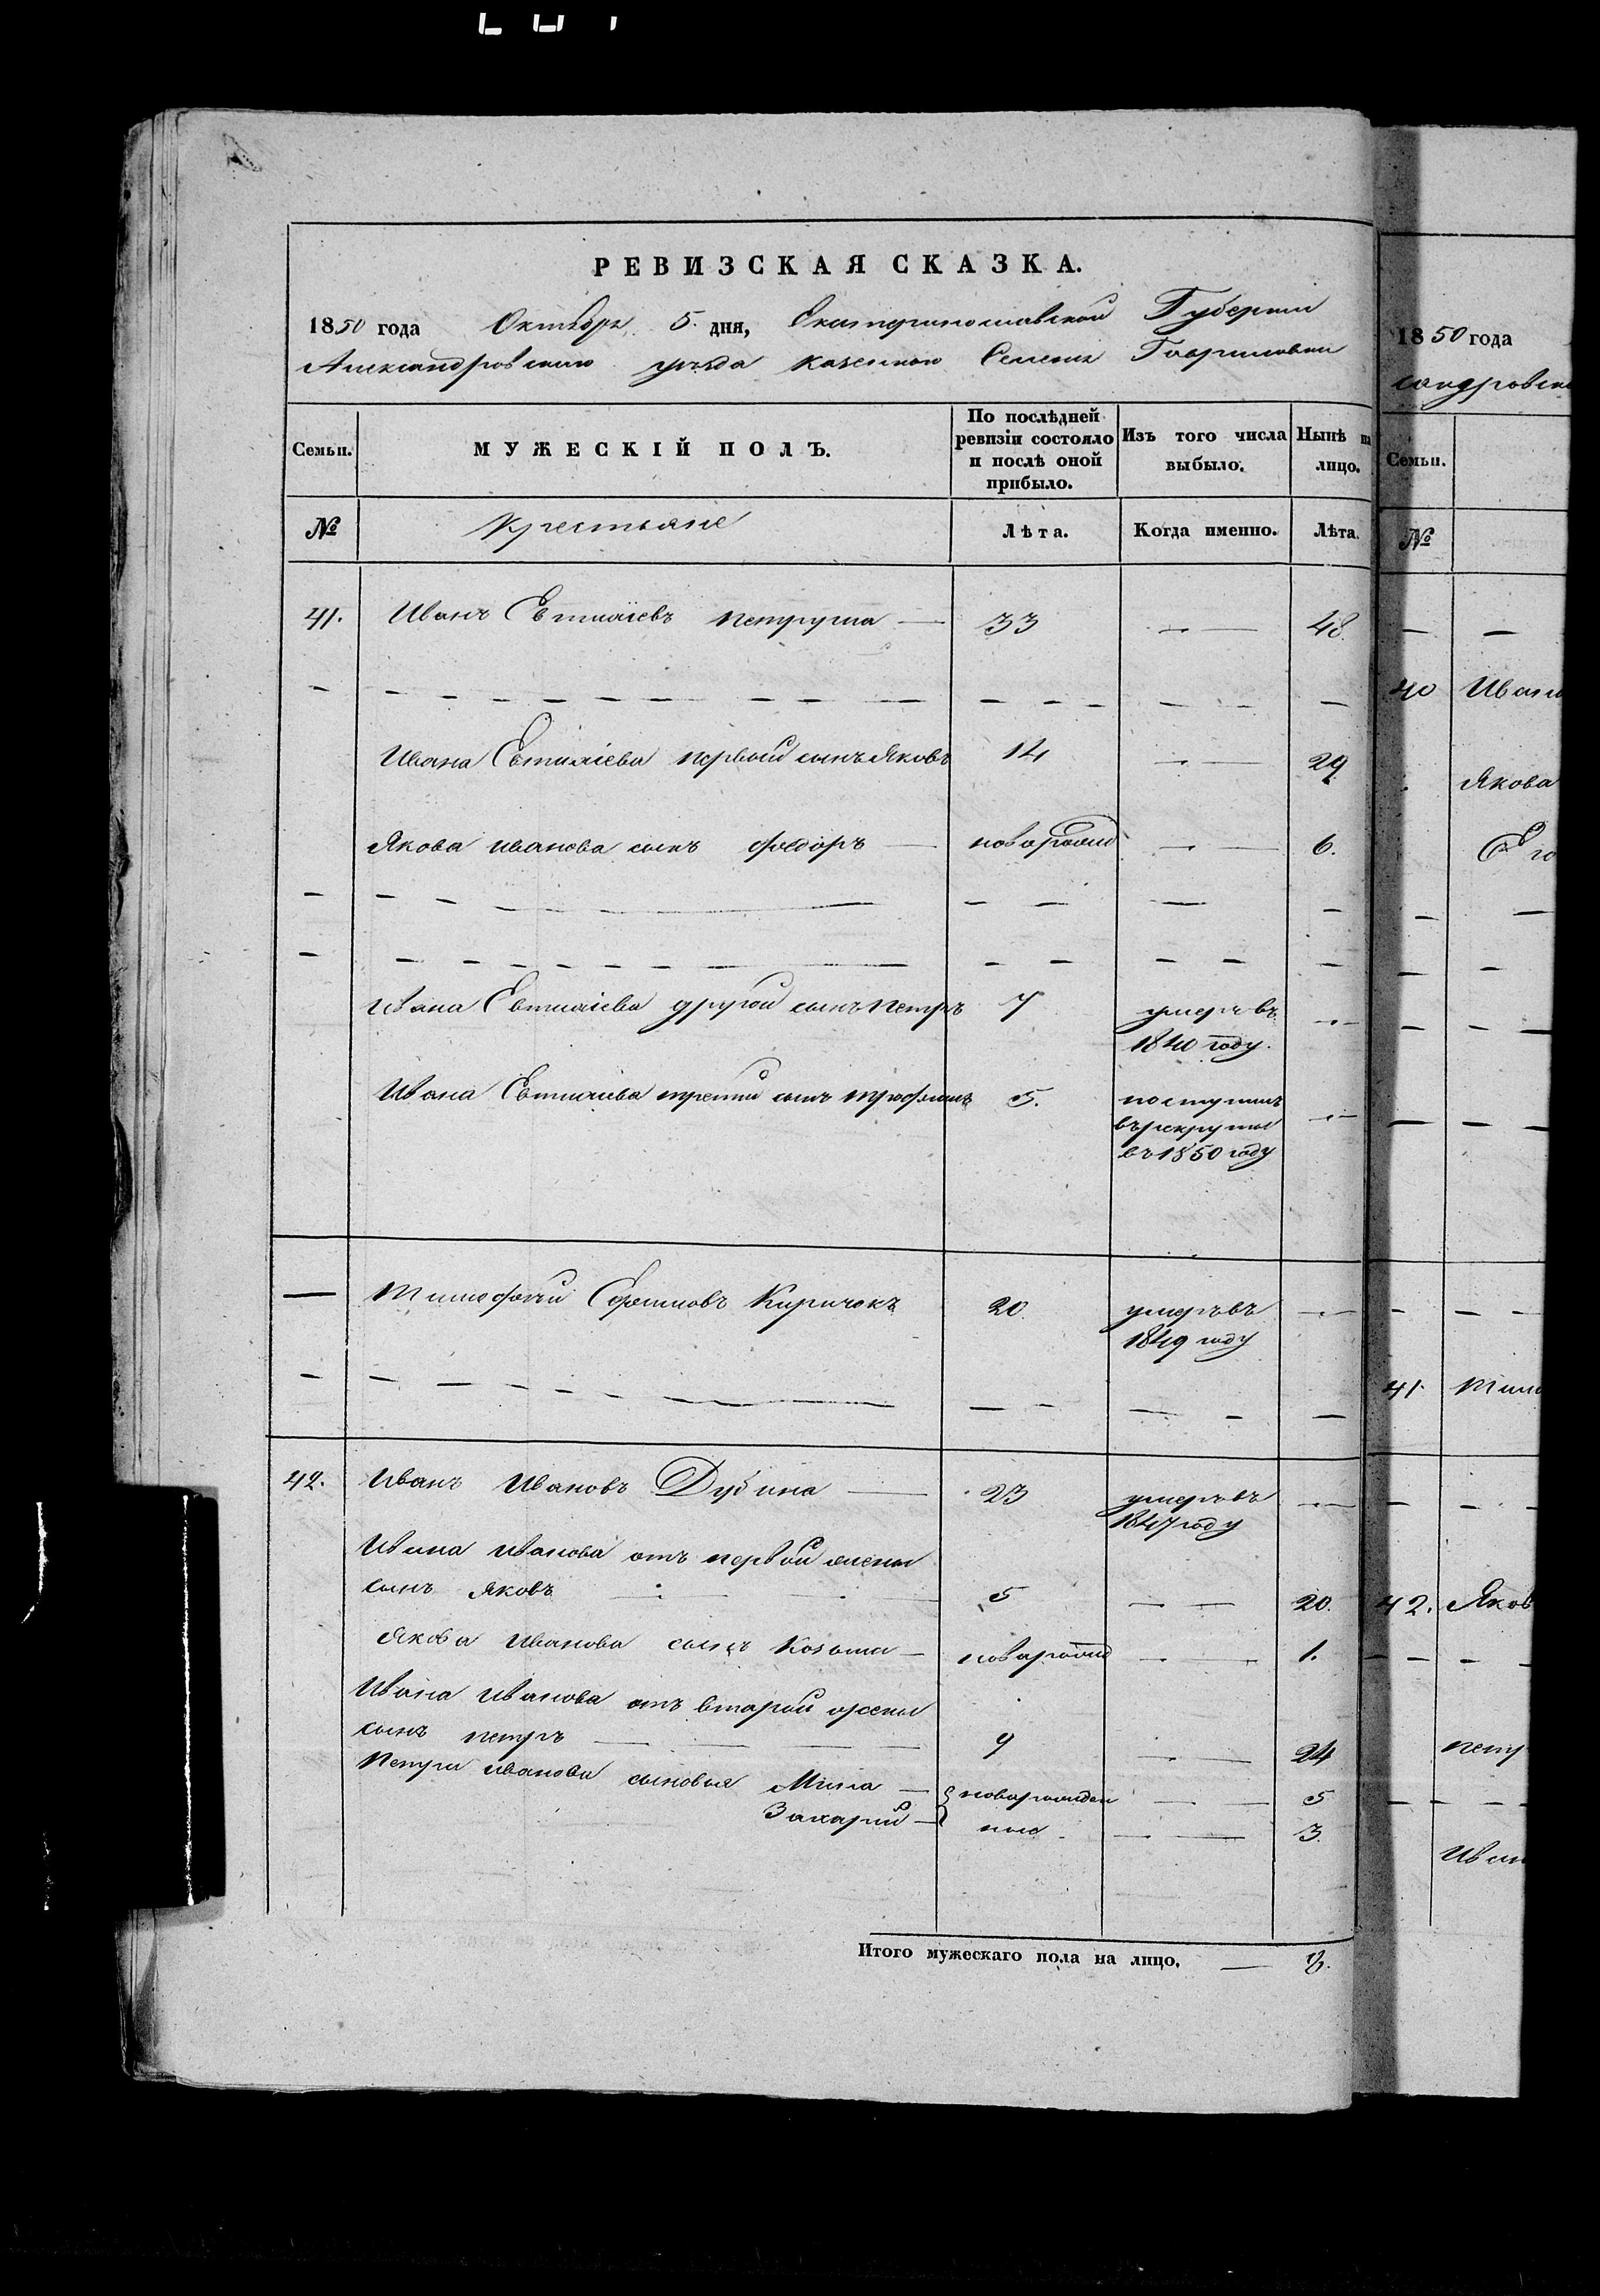 РЕВИЗСКАЯ СКАЗКА.
1850 года Октября 5. дня, Екатеринославской Губернии
Александровскаго уезда казенного Селения Гавриловки
Семьи.
МУЖЕСКІЙ ПОЛЪ.
По послѣдней ревизіи состояло и послѣ оной прибыло.
Изъ того числа выбыло.
Нынѣ на лицо.
№ Крестьяне Лѣта. Когда именно. Лѣта.
41. Иванъ Евтихіевъ Петруша — 33 — 48.
Ивана Евтихіева первый сынъ Яковъ 14 — 29
Якова Иванова сынъ Федоръ — новорожд — 6.
Ивана Евтихіева другой сынъ Петръ 7 умеръ въ
1840 году.
Ивана Евтихіева третий сынъ Трофимъ 5. поступилъ
въ рекруты
въ 1850 году
— Тимофей Ефимовъ Киричокъ 20. умеръ въ
1849 году
42. Иванъ Ивановъ Дубина — 23 умеръ въ
1847 году
Ивана Иванова отъ первой жены
сынъ Яковъ 5 — 20.
Якова Иванова сынъ Козьма — новорожд — 1.
Ивана Иванова отъ второй жены
сынъ Петръ — 9 — 24
Петра Иванова сыновья Мина — новорожден — 5
Захарий — ные — 3.
Итого мужескаго пола на лицо. — 8.
1850 года
сандровск
Семьи.
№
40 Иван
Якова
Его
41. Тимо
42. Яков
Петр
Иван